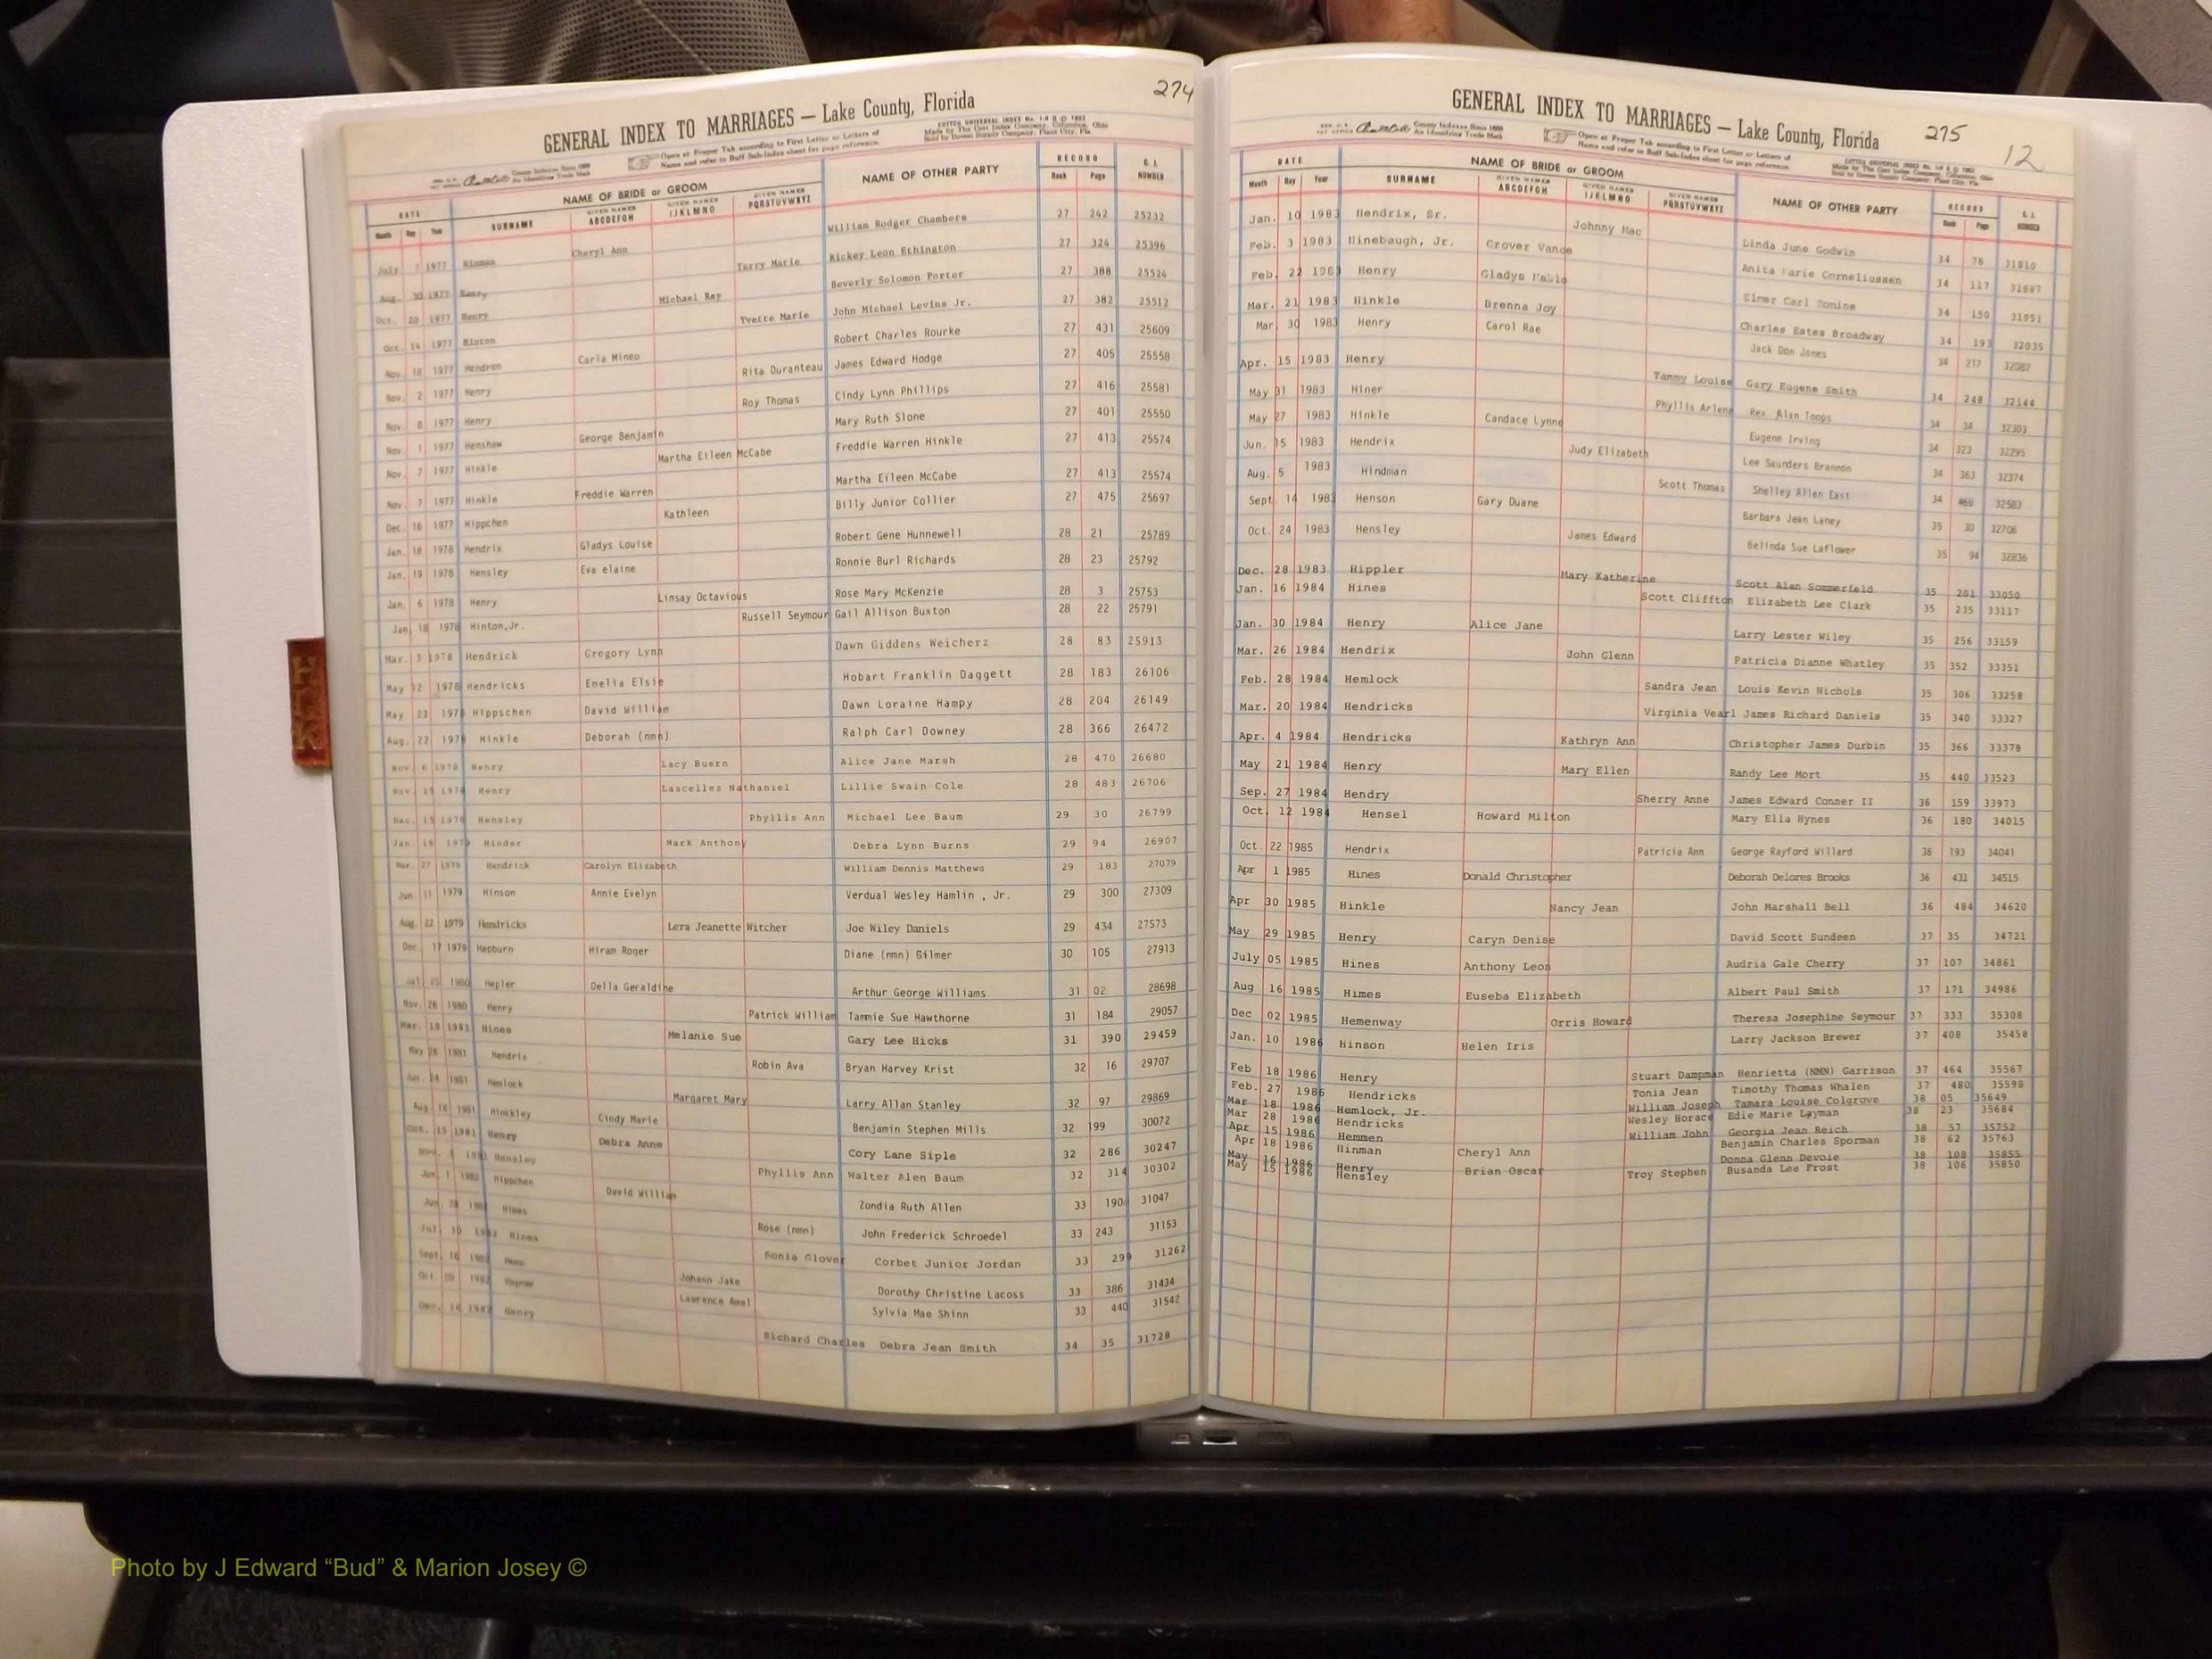 274
GENERAL INDEX TO MARRIAGES — Lake County, Florida
COTTCO UNIVERSAL INDEX No. 1-9 B © 1953
Made by The Cott Index Company, Columbus, Ohio
Sold by Bowen Supply Company, Plant City, Fla.
County Indexes Since 1888
An Identifying Trade Mark
Open at Proper Tab according to First Letter or Letters of
Name and refer to Buff Sub-Index sheet for page reference.
DATE NAME OF BRIDE or GROOM NAME OF OTHER PARTY RECORD C. I.
Month Day Year SURNAME GIVEN NAMES ABCDEFGH GIVEN NAMES IJKLMNO GIVEN NAMES PQRSTUVWXYZ Book Page NUMBER
July 7 1977 Hinman Cheryl Ann William Rodger Chambers 27 242 25232
Aug. 30 1977 Henry Terry Marie Rickey Leon Ethington 27 324 25396
Oct. 20 1977 Henry Michael Ray Beverly Solomon Porter 27 388 25524
Oct. 14 1977 Hinton Yvette Marie John Michael Levins Jr. 27 382 25512
Nov. 18 1977 Hendren Carla Mineo Robert Charles Rourke 27 431 25609
Nov. 2 1977 Henry Rita Duranteau James Edward Hodge 27 405 25558
Nov. 8 1977 Henry Roy Thomas Cindy Lynn Phillips 27 416 25581
Nov. 1 1977 Henshaw George Benjamin Mary Ruth Slone 27 401 25550
Nov. 7 1977 Hinkle Martha Eileen McCabe Freddie Warren Hinkle 27 413 25574
Nov. 7 1977 Hinkle Freddie Warren Martha Eileen McCabe 27 413 25574
Dec. 16 1977 Hippchen Kathleen Billy Junior Collier 27 475 25697
Jan. 18 1978 Hendrix Gladys Louise Robert Gene Hunnewell 28 21 25789
Jan. 19 1978 Hensley Eva elaine Ronnie Burl Richards 28 23 25792
Jan. 6 1978 Henry Linsay Octavious Rose Mary McKenzie 28 3 25753
Jan. 18 1978 Hinton,Jr. Russell Seymour Gail Allison Buxton 28 22 25791
Mar. 3 1978 Hendrick Gregory Lynn Dawn Giddens Weicherz 28 83 25913
May 12 1978 Hendricks Emelia Elsie Hobart Franklin Daggett 28 183 26106
May 23 1978 Hippschen David William Dawn Loraine Hampy 28 204 26149
Aug. 22 1978 Hinkle Deborah (nmn) Ralph Carl Downey 28 366 26472
Nov. 6 1978 Henry Lacy Buern Alice Jane Marsh 28 470 26680
Nov. 15 1978 Henry Lascelles Nathaniel Lillie Swain Cole 28 483 26706
Dec. 15 1978 Hensley Phyllis Ann Michael Lee Baum 29 30 26799
Jan. 18 1979 Hinder Mark Anthony Debra Lynn Burns 29 94 26907
Mar. 27 1979 Hendrick Carolyn Elizabeth William Dennis Matthews 29 183 27079
Jun 11 1979 Hinson Annie Evelyn Verdual Wesley Hamlin , Jr. 29 300 27309
Aug. 22 1979 Hendricks Lera Jeanette Witcher Joe Wiley Daniels 29 434 27573
Dec. 17 1979 Hepburn Hiram Roger Diane (nmn) Gilmer 30 105 27913
Jul. 1980 Hepler Della Geraldine Arthur George Williams 31 02 28698
Nov. 26 1980 Henry Patrick William Tammie Sue Hawthorne 31 184 29057
Mar. 18 1981 Hines Melanie Sue Gary Lee Hicks 31 390 29459
May 26 1981 Hendrix Robin Ava Bryan Harvey Krist 32 16 29707
Jun. 24 1981 Hemlock Margaret Mary Larry Allan Stanley 32 97 29869
Aug 18 1981 Hinckley Cindy Marie Benjamin Stephen Mills 32 199 30072
Oct. 1981 Henry Debra Anne Cory Lane Siple 32 286 30247
Nov. 1981 Hensley Phyllis Ann Walter Alen Baum 32 314 30302
Jun. 1 1982 Hippchen David William Zondia Ruth Allen 33 190 31047
Jun. 28 1982 Hines Rose (nmn) John Frederick Schroedel 33 243 31153
Jul. 30 1982 Hines Sonia Glover Corbet Junior Jordan 33 299 31262
Sept. 16 1982 Johann Jake Dorothy Christine Lacoss 33 386 31434
Oct. 20 1982 Lawrence Amel Sylvia Mae Shinn 33 440 31542
Dec. 16 1982 Henry Richard Charles Debra Jean Smith 34 35 31728
HKK
GENERAL INDEX TO MARRIAGES — Lake County, Florida
275
12
County Indexes Since 1888
An Identifying Trade Mark
Open at Proper Tab according to First Letter or Letters of
Name and refer to Buff Sub-Index sheet for page reference.
COTTCO UNIVERSAL INDEX No. 1-9 B © 1953
Made by The Cott Index Company, Columbus, Ohio
Sold by Bowen Supply Company, Plant City, Fla.
DATE NAME OF BRIDE or GROOM NAME OF OTHER PARTY RECORD C. I.
Month Day Year SURNAME GIVEN NAMES ABCDEFGH GIVEN NAMES IJKLMNO GIVEN NAMES PQRSTUVWXYZ Book Page NUMBER
Jan. 10 1983 Hendrix, Sr. Johnny Mac Linda June Godwin 34 78 31810
Feb. 3 1983 Hinebaugh, Jr. Grover Vance Anita Marie Corneliussen 34 117 31887
Feb. 22 1983 Henry Gladys Pablo Elmer Carl Tomine 34 150 31951
Mar. 21 1983 Hinkle Brenna Joy Charles Estes Broadway 34 193 32035
Mar 30 1983 Henry Carol Rae Jack Dan Jones 34 217 32082
Apr. 15 1983 Henry Tammy Louise Gary Eugene Smith 34 248 32144
May 31 1983 Hiner Phyllis Arlene Rex Alan Toops 34 34 32303
May 27 1983 Hinkle Candace Lynne Eugene Irving 34 323 32295
Jun. 15 1983 Hendrix Judy Elizabeth Lee Saunders Brannon 34 363 32374
Aug. 5 1983 Hindman Scott Thomas Shelley Allen East 34 468 32583
Sept. 14 1983 Henson Gary Duane Barbara Jean Laney 35 30 32706
Oct. 24 1983 Hensley James Edward Belinda Sue Laflower 35 94 32836
Dec. 28 1983 Hippler Mary Katherine Scott Alan Sommerfeld 35 201 33050
Jan. 16 1984 Hines Scott Cliffton Elizabeth Lee Clark 35 235 33117
Jan. 30 1984 Henry Alice Jane Larry Lester Wiley 35 256 33159
Mar. 26 1984 Hendrix John Glenn Patricia Dianne Whatley 35 352 33351
Feb. 28 1984 Hemlock Sandra Jean Louis Kevin Nichols 35 306 33258
Mar. 20 1984 Hendricks Virginia Vearl James Richard Daniels 35 340 33327
Apr. 4 1984 Hendricks Kathryn Ann Christopher James Durbin 35 366 33378
May 21 1984 Henry Mary Ellen Randy Lee Mort 35 440 33523
Sep. 27 1984 Hendry Sherry Anne James Edward Conner II 36 159 33973
Oct. 12 1984 Hensel Howard Milton Mary Ella Hynes 36 180 34015
Oct. 22 1985 Hendrix Patricia Ann George Rayford Willard 36 193 34041
Apr 1 1985 Hines Donald Christopher Deborah Delores Brooks 36 431 34515
Apr 30 1985 Hinkle Nancy Jean John Marshall Bell 36 484 34620
May 29 1985 Henry Caryn Denise David Scott Sundeen 37 35 34721
July 05 1985 Hines Anthony Leon Audria Gale Cherry 37 107 34861
Aug 16 1985 Himes Euseba Elizabeth Albert Paul Smith 37 171 34986
Dec 02 1985 Hemenway Orris Howard Theresa Josephine Seymour 37 333 35308
Jan. 10 1986 Hinson Helen Iris Larry Jackson Brewer 37 408 35458
Feb 18 1986 Henry Stuart Dampman Henrietta (NMN) Garrison 37 464 35567
Feb. 27 1986 Hendricks Tonia Jean Timothy Thomas Whalen 37 480 35598
Mar 18 1986 Hemlock, Jr. William Joseph Tamara Louise Colgrove 38 05 35649
Mar 28 1986 Hendricks Wesley Horace Edie Marie Layman 38 23 35684
Apr 15 1986 Hemmen William John Georgia Jean Reich 38 57 35752
Apr 18 1986 Hinman Cheryl Ann Benjamin Charles Sporman 38 62 35763
May 16 1986 Henry Brian Oscar Donna Glenn Devoie 38 108 35855
May 15 1986 Hensley Troy Stephen Busanda Lee Frost 38 106 35850
Photo by J Edward “Bud” & Marion Josey ©